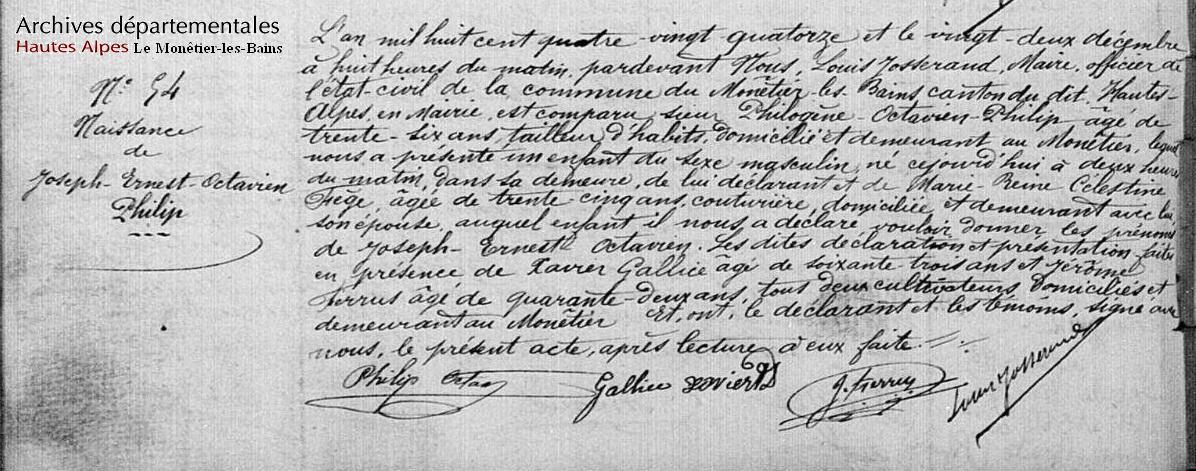 Archives départementales
Hautes Alpes Le Monêtier-les-Bains
N° 54
Naissance
de
Joseph-Ernest-Octavien
Philip
L'an mil huit cent quatre-vingt quatorze et le vingt-deux décembre
à huit heures du matin, pardevant Nous, Louis Josserand, Maire, officier de
l'état-civil de la commune du Monêtier-les-Bains canton du dit, Hautes-
Alpes, en Mairie, est comparu sieur Philogène-Octavien-Philip, âgé de
trente-six ans, tailleur d'habits, domicilié et demeurant au Monêtier, lequel
nous a présenté un enfant du sexe masculin, né cejourd'hui à deux heures
du matin, dans sa demeure, de lui déclarant et de Marie-Reine Célestine
Fège, âgée de trente cinq ans, couturière, domiciliée et demeurant avec lui
son épouse, auquel enfant il nous a déclaré vouloir donner les prénoms
de Joseph-Ernest Octavien. Les dites déclaration et présentation faites
en présence de Xavier Gallice âgé de soixante trois ans et Jérôme
âgé de quarante-deux ans, tous deux cultivateurs domiciliés et
demeurant au Monêtier Et, ont, le déclarant et les témoins, signé avec
nous, le présent acte, après lecture à eux faite.
Philip Gallice xavier Louis Josserand